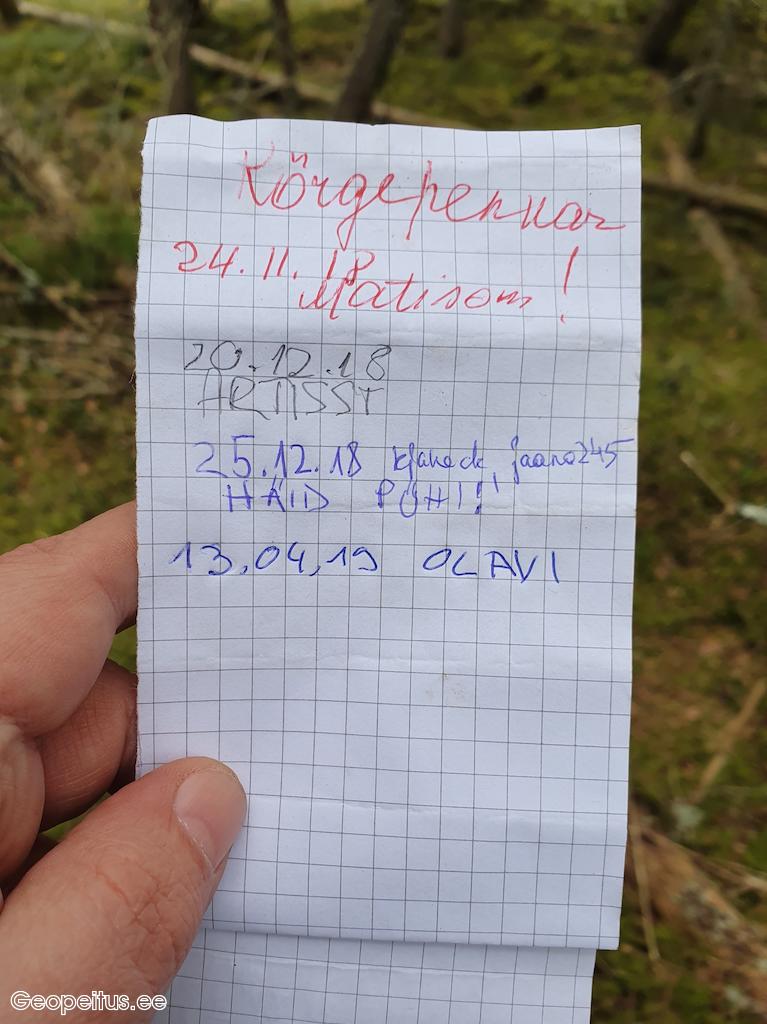 Kõrgepennar
24.11.18
Matisom!
20.12.18
ARTISST
25.12.18 kjaneck, jaano245
HÄID PÜHI!!
13.04.19 OLAVI
Geopeitus.ee